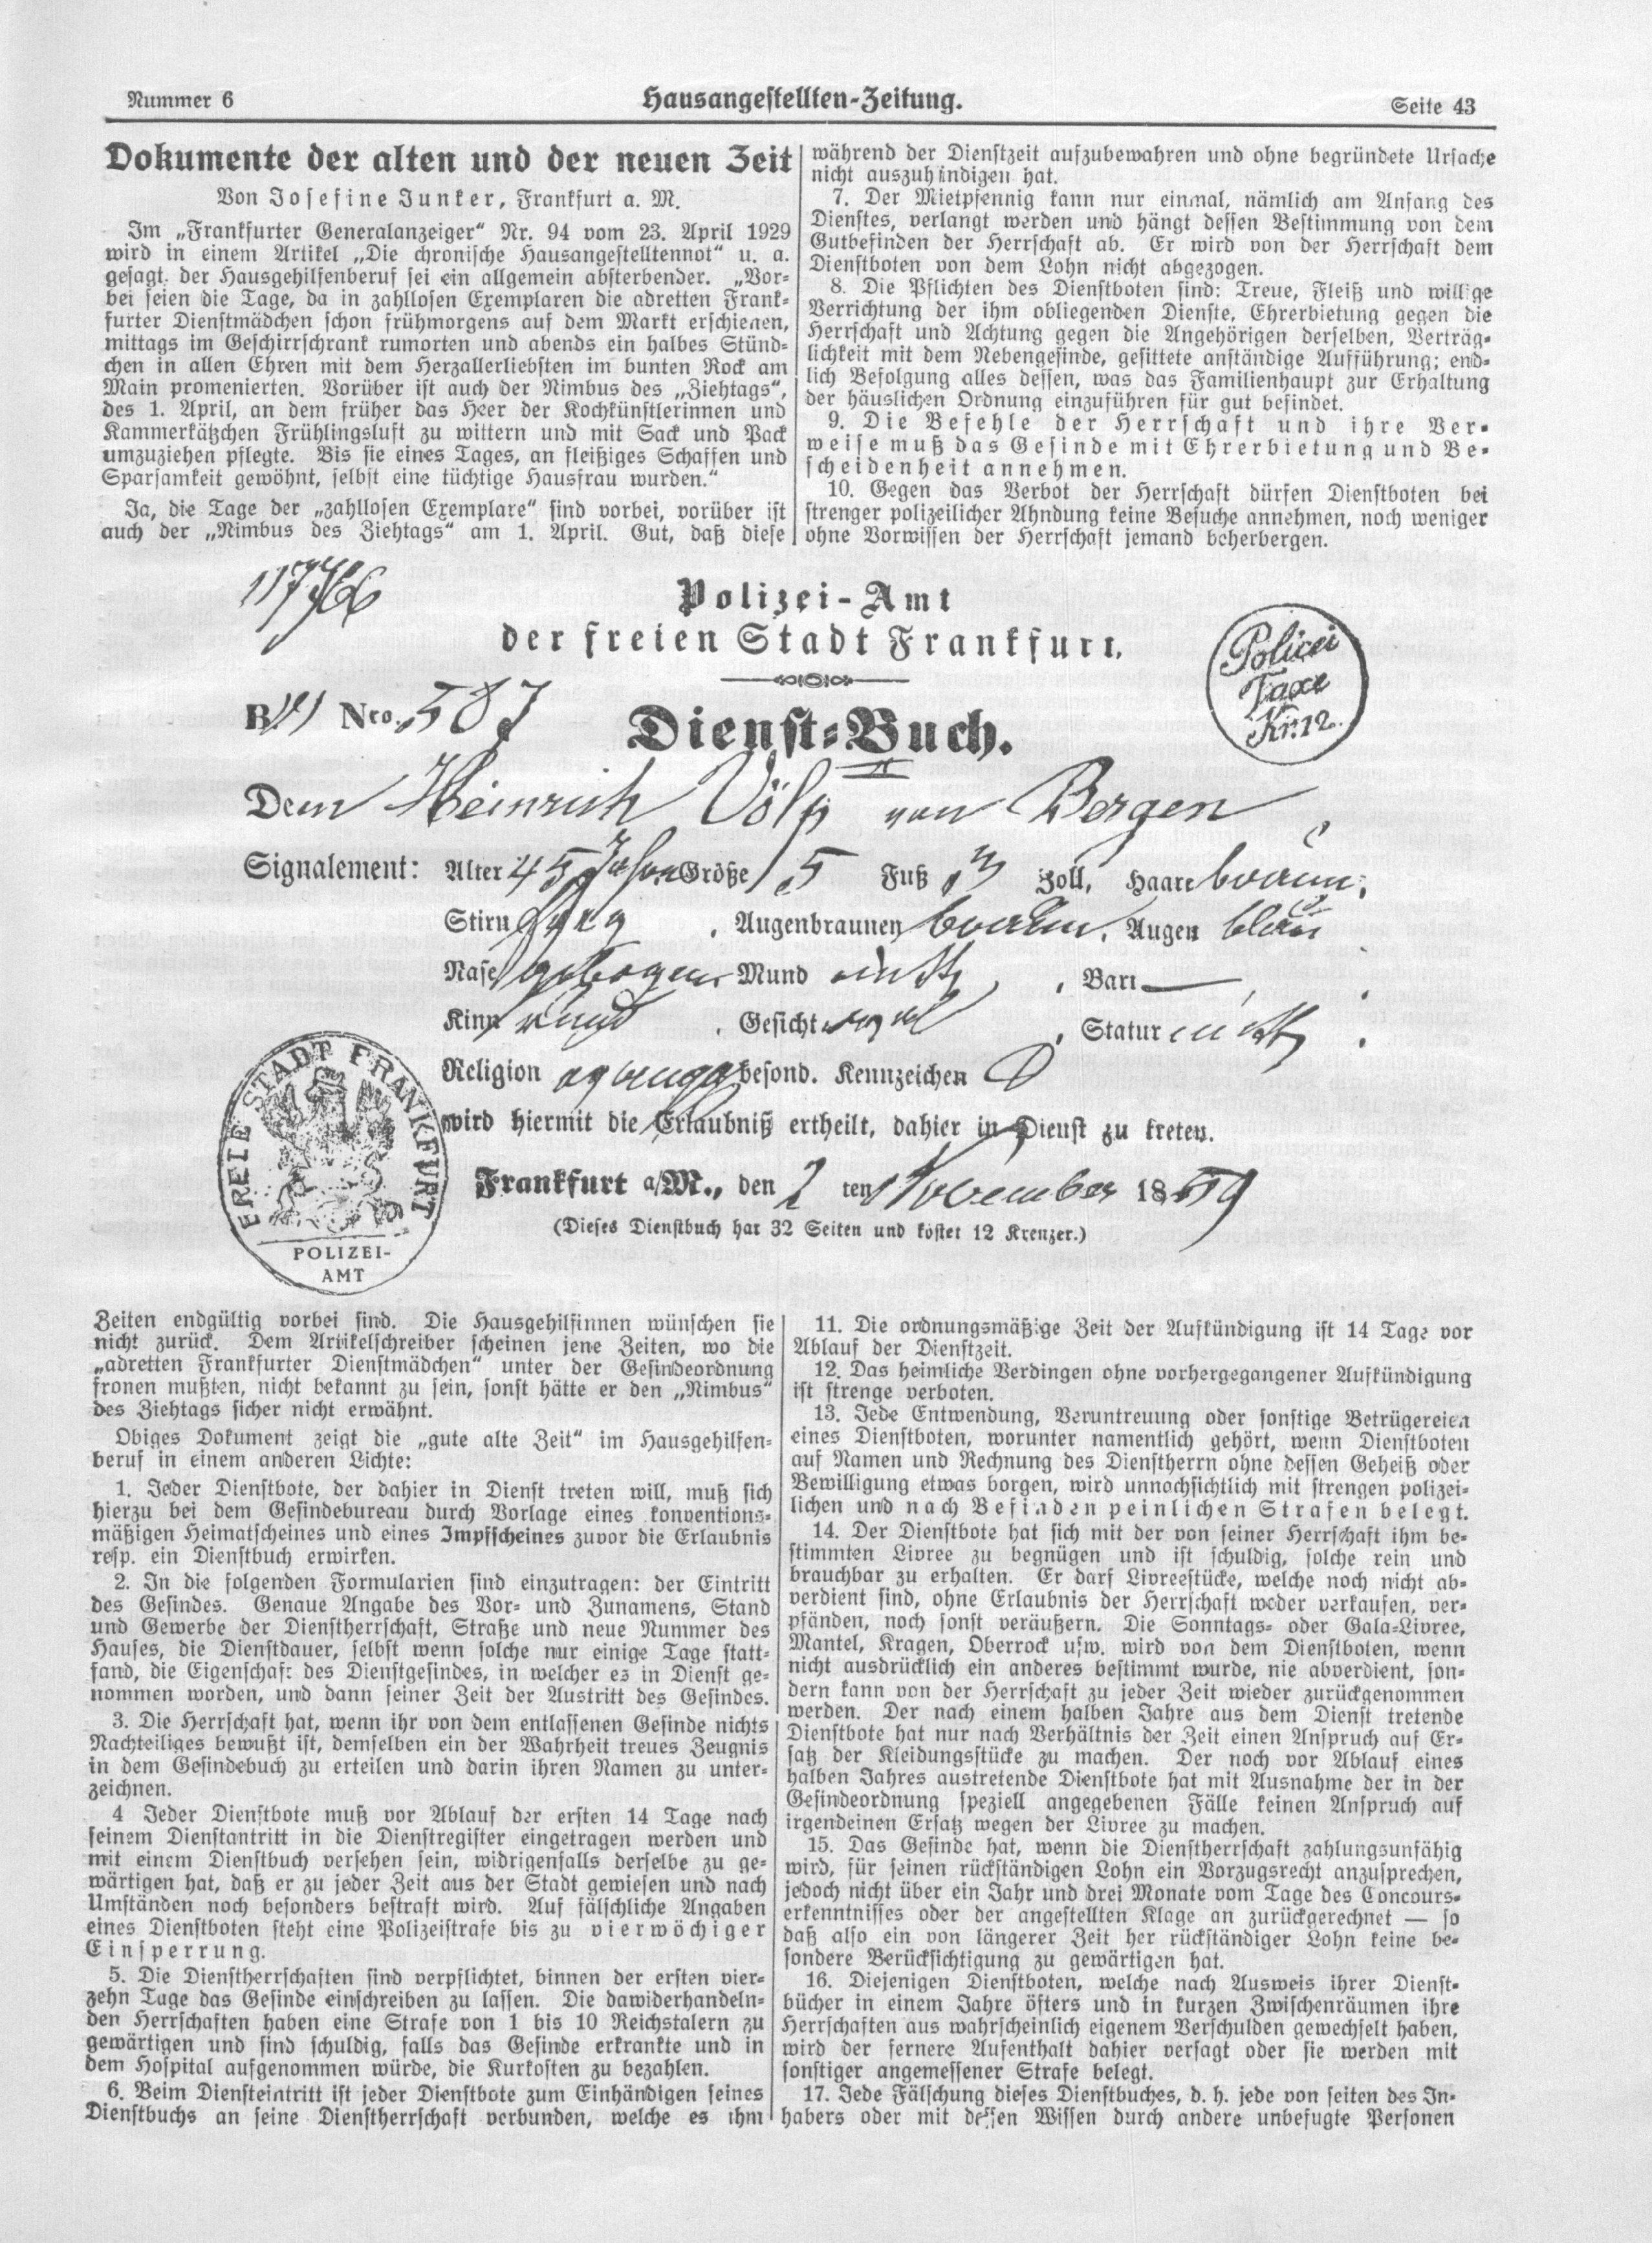 Nummer 6
Hausangestellten-Zeitung.
Seite 43
Dokumente der alten und der neuen Zeit
Von Josefine Junker, Frankfurt a. M.
Im „Frankfurter Generalanzeiger“ Nr. 94 vom 23. April 1929
wird in einem Artikel „Die chronische Hausangestelltennot“ u. a.
gesagt: der Hausgehilfenberuf sei ein allgemein absterbender. „Vor-
bei seien die Tage, da in zahllosen Exemplaren die adretten Frank-
furter Dienstmädchen schon frühmorgens auf dem Markt erschienen,
mittags im Geschirrschrank rumorten und abends ein halbes Stünd-
chen in allen Ehren mit dem Herzallerliebsten im bunten Rock am
Main promenierten. Vorüber ist auch der Nimbus des „Ziehtags“,
des 1. April, an dem früher das Heer der Kochkünstlerinnen und
Kammerkätzchen Frühlingsluft zu wittern und mit Sack und Pack
umzuziehen pflegte. Bis sie eines Tages, an fleißiges Schaffen und
Sparsamkeit gewöhnt, selbst eine tüchtige Hausfrau wurden.“
Ja, die Tage der „zahllosen Exemplare“ sind vorbei, vorüber ist
auch der „Nimbus des Ziehtags“ am 1. April. Gut, daß diese
während der Dienstzeit aufzubewahren und ohne begründete Ursache
nicht auszuhändigen hat.
7. Der Mietpfennig kann nur einmal, nämlich am Anfang des
Dienstes, verlangt werden und hängt dessen Bestimmung von dem
Gutbefinden der Herrschaft ab. Er wird von der Herrschaft dem
Dienstboten von dem Lohn nicht abgezogen.
8. Die Pflichten des Dienstboten sind: Treue, Fleiß und willige
Verrichtung der ihm obliegenden Dienste, Ehrerbietung gegen die
Herrschaft und Achtung gegen die Angehörigen derselben, Verträg-
lichkeit mit dem Nebengesinde, gesittete anständige Aufführung; end-
lich Befolgung alles dessen, was das Familienhaupt zur Erhaltung
der häuslichen Ordnung einzuführen für gut befindet.
9. Die Befehle der Herrschaft und ihre Ver-
weise muß das Gesinde mit Ehrerbietung und Be-
scheidenheit annehmen.
10. Gegen das Verbot der Herrschaft dürfen Dienstboten bei
strenger polizeilicher Ahndung keine Besuche annehmen, noch weniger
ohne Vorwissen der Herrschaft jemand beherbergen.
Polizei-Amt
der freien Stadt Frankfurt.
Polizei
Taxe
Kr. 12.
B Nro. 587
Dienst-Buch.
Dem Heinrich Völp von Bergen
Signalement: Alter 45 Jahre Größe 5 Fuß 3 Zoll, Haare braun,
Stirn , Augenbraunen braun, Augen blau
Nase gebogen Mund mittl, Bart —
Kinn rund, Gesicht oval, Statur mittl,
Religion besond. Kennzeichen
wird hiermit die Erlaubniß ertheilt, dahier in Dienst zu treten.
Frankfurt a/M., den 2 ten November 1859
(Dieses Dienstbuch hat 32 Seiten und kostet 12 Kreuzer.)
FREIE STADT FRANKFURT
POLIZEI-
AMT
Zeiten endgültig vorbei sind. Die Hausgehilfinnen wünschen sie
nicht zurück. Dem Artikelschreiber scheinen jene Zeiten, wo die
„adretten Frankfurter Dienstmädchen“ unter der Gesindeordnung
fronen mußten, nicht bekannt zu sein, sonst hätte er den „Nimbus“
des Ziehtags sicher nicht erwähnt.
Obiges Dokument zeigt die „gute alte Zeit“ im Hausgehilfen-
beruf in einem anderen Lichte:
1. Jeder Dienstbote, der dahier in Dienst treten will, muß sich
hierzu bei dem Gesindebureau durch Vorlage eines konventions-
mäßigen Heimatscheines und eines Impfscheines zuvor die Erlaubnis
resp. ein Dienstbuch erwirken.
2. In die folgenden Formularien sind einzutragen: der Eintritt
des Gesindes. Genaue Angabe des Vor- und Zunamens, Stand
und Gewerbe der Dienstherrschaft, Straße und neue Nummer des
Hauses, die Dienstdauer, selbst wenn solche nur einige Tage statt-
fand, die Eigenschaft des Dienstgesindes, in welcher es in Dienst ge-
nommen worden, und dann seiner Zeit der Austritt des Gesindes.
3. Die Herrschaft hat, wenn ihr von dem entlassenen Gesinde nichts
Nachteiliges bewußt ist, demselben ein der Wahrheit treues Zeugnis
in dem Gesindebuch zu erteilen und darin ihren Namen zu unter-
zeichnen.
4 Jeder Dienstbote muß vor Ablauf der ersten 14 Tage nach
seinem Dienstantritt in die Dienstregister eingetragen werden und
mit einem Dienstbuch versehen sein, widrigenfalls derselbe zu ge-
wärtigen hat, daß er zu jeder Zeit aus der Stadt gewiesen und nach
Umständen noch besonders bestraft wird. Auf fälschliche Angaben
eines Dienstboten steht eine Polizeistrafe bis zu vierwöchiger
Einsperrung.
5. Die Dienstherrschaften sind verpflichtet, binnen der ersten vier-
zehn Tage das Gesinde einschreiben zu lassen. Die dawiderhandeln-
den Herrschaften haben eine Strafe von 1 bis 10 Reichstalern zu
gewärtigen und sind schuldig, falls das Gesinde erkrankte und in
dem Hospital aufgenommen würde, die Kurkosten zu bezahlen.
6. Beim Diensteintritt ist jeder Dienstbote zum Einhändigen seines
Dienstbuchs an seine Dienstherrschaft verbunden, welche es ihm
11. Die ordnungsmäßige Zeit der Aufkündigung ist 14 Tage vor
Ablauf der Dienstzeit.
12. Das heimliche Verdingen ohne vorhergegangener Aufkündigung
ist strenge verboten.
13. Jede Entwendung, Veruntreuung oder sonstige Betrügereien
eines Dienstboten, worunter namentlich gehört, wenn Dienstboten
auf Namen und Rechnung des Dienstherrn ohne dessen Geheiß oder
Bewilligung etwas borgen, wird unnachsichtlich mit strengen polizei-
lichen und nach Befinden peinlichen Strafen belegt.
14. Der Dienstbote hat sich mit der von seiner Herrschaft ihm be-
stimmten Livree zu begnügen und ist schuldig, solche rein und
brauchbar zu erhalten. Er darf Livreestücke, welche noch nicht ab-
verdient sind, ohne Erlaubnis der Herrschaft weder verkaufen, ver-
pfänden, noch sonst veräußern. Die Sonntags- oder Gala-Livree,
Mantel, Kragen, Oberrock usw. wird von dem Dienstboten, wenn
nicht ausdrücklich ein anderes bestimmt wurde, nie abverdient, son-
dern kann von der Herrschaft zu jeder Zeit wieder zurückgenommen
werden. Der nach einem halben Jahre aus dem Dienst tretende
Dienstbote hat nur nach Verhältnis der Zeit einen Anspruch auf Er-
satz der Kleidungsstücke zu machen. Der noch vor Ablauf eines
halben Jahres austretende Dienstbote hat mit Ausnahme der in der
Gesindeordnung speziell angegebenen Fälle keinen Anspruch auf
irgendeinen Ersatz wegen der Livree zu machen.
15. Das Gesinde hat, wenn die Dienstherrschaft zahlungsunfähig
wird, für seinen rückständigen Lohn ein Vorzugsrecht anzusprechen,
jedoch nicht über ein Jahr und drei Monate vom Tage des Concours-
erkenntnisses oder der angestellten Klage an zurückgerechnet — so
daß also ein von längerer Zeit her rückständiger Lohn keine be-
sondere Berücksichtigung zu gewärtigen hat.
16. Diejenigen Dienstboten, welche nach Ausweis ihrer Dienst-
bücher in einem Jahre öfters und in kurzen Zwischenräumen ihre
Herrschaften aus wahrscheinlich eigenem Verschulden gewechselt haben,
wird der fernere Aufenthalt dahier versagt oder sie werden mit
sonstiger angemessener Strafe belegt.
17. Jede Fälschung dieses Dienstbuches, d. h. jede von seiten des In-
habers oder mit dessen Wissen durch andere unbefugte Personen